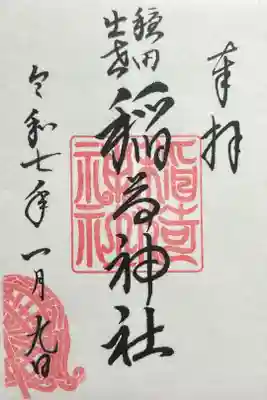 奉拝
出世
稲荷神社
稲荷
神社
令和七年一月九日